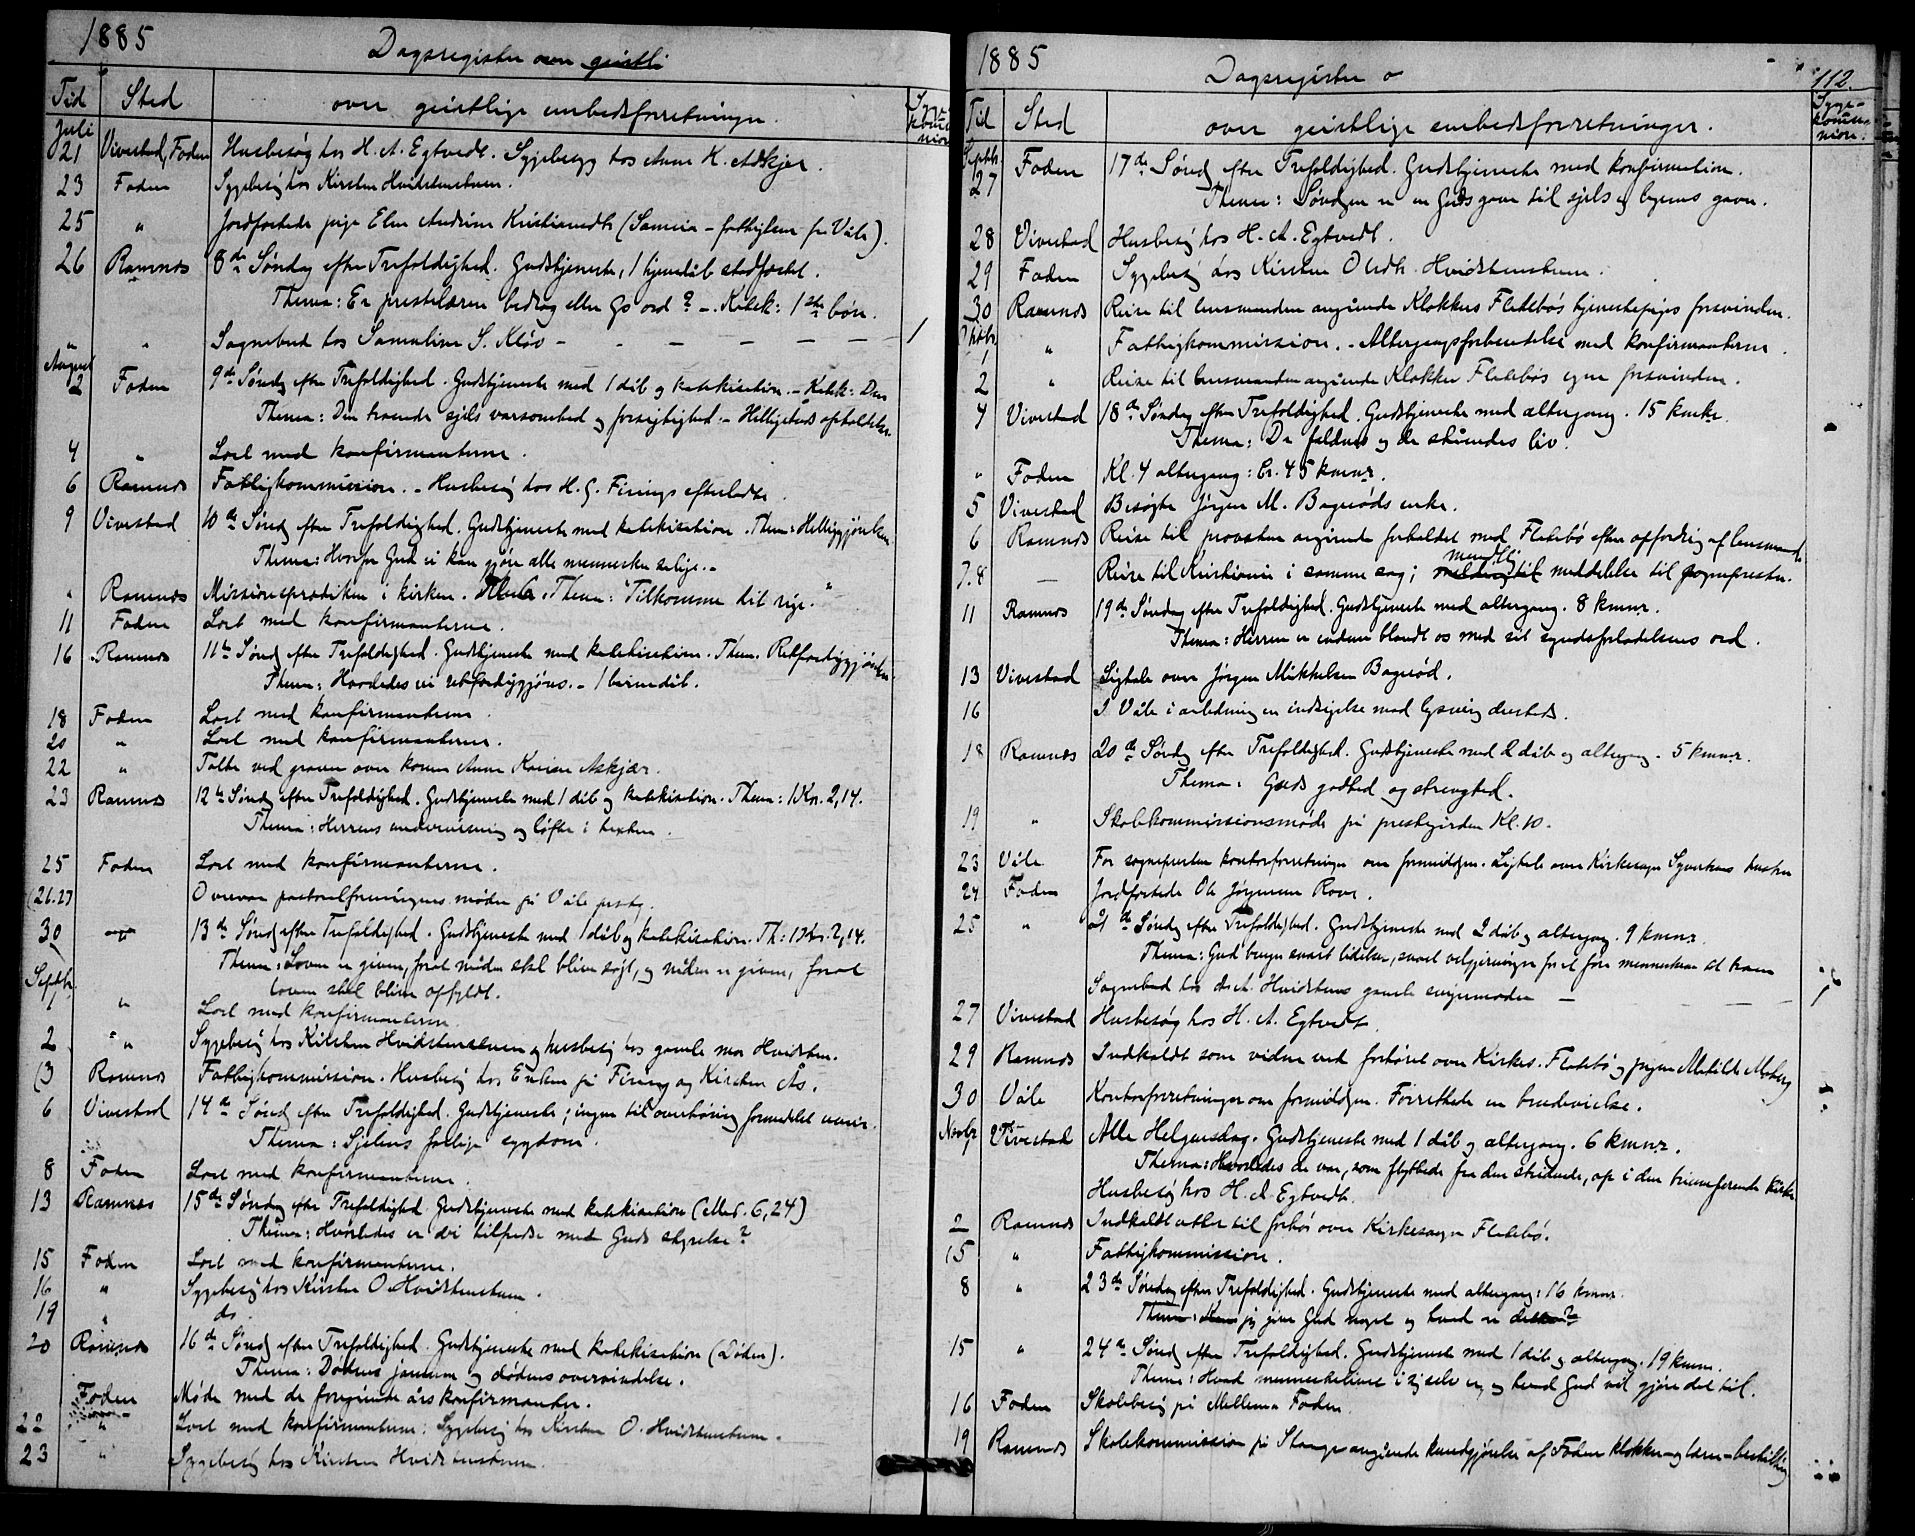 1885
Dagsregister over geistli
Tid Sted over geistlige embedsforretninger. Sygekommunion
Juli
21 Vivestad, Foden Husbesøg hos H. A. Egtvedt. Sygebesøg hos Anne K. Askjær.
23 Foden Sygebesøg hos Kirsten Hvidstenstuen.
25 " Jordfæstede pige Elen Andrine Kristiansdtr (Sannia - fattiglem fra Våle).
26 Ramnes 8de Søndag efter Trefoldighed. Gudstjeneste, 1 hjemdåb stadfæstet.
Thema: Er prestelæren bedrag eller Gs ord? - Katek: 1ste bøn.
" " Sognebud hos Samuline S. Kløv - - - - - 1
August
2 Foden 9de Søndag efter Trefoldighed. Gudstjeneste med 1 dåb og katekisation. - Katek: Den
Thema: Den troende sjæls varsomhed og forsigtighed. - Helligånds opholdelse.
4 " Læst med konfirmanterne.
6 Ramnes Fattigkommission. - Husbesøg hos H. G. Firings efterladte.
9 Vivestad 10de Søndag efter Trefoldighed. Gudstjeneste med katekisation. Them: Helliggjørelsen
Thema: Hvorfor Gud ei kan gjøre alle mennesker salige. -
" Ramnes Missionsprædiken i kirken. Thema: "Tilkomme dit rige."
11 Foden Læst med konfirmanterne.
16 Ramnes 11te Søndag efter Trefoldighed. Gudstjeneste med katekisation. Them. Retfærdiggjørelsen.
Thema: Hvorledes vi retfærdiggjøres. - 1 barnedåb.
18 Foden Læst med konfirmanterne.
20 " Læst med konfirmanterne.
22 " Talte ved graven over konen Anne Karine Askjær.
23 Ramnes 12te Søndag efter Trefoldighed. Gudstjeneste med 1 dåb og katekisation. Them: 1 Kor. 2,14.
Thema: Herrens undervisning og løfte i texten.
25 Foden Læst med konfirmanterne.
(26.27 Overvar pastoralforeningens møde på Våle prstg.
30 13de Søndag efter Trefoldighed. Gudstjeneste med 1 dåb og katekisation. Th: 1 Kor. 2,14.
Thema: Loven er given, forat nåden skal blive søgt, og nåden er given, forat
loven skal blive opfyldt.
Septbr.
1 " Læst med konfirmanterne.
2 " Sygebesøg hos Kirsten Hvidstenstuen og husbesøg hos gamle mor Hvidsten.
(3 Ramnes Fattigkommission. Husbesøg hos Enken på Firing og Kirsten Ås.
6 Vivestad 14de Søndag efter Trefoldighed. Gudstjeneste; ingen til overhøring formedelst veiret.
Thema: Sjælens farlige sygdom.
8 Foden Læst med konfirmanterne.
13 Ramnes 15de Søndag efter Trefoldighed. Gudstjeneste med katekisation (Matt. 6,24)
Thema: Hvorledes er vi tilfredse med Guds styrelse?
15 Foden Læst med konfirmanterne.
16 " Sygebesøg hos Kirsten O. Hvidstenstuen.
19 " do.
20 Ramnes 16de Søndag efter Trefoldighed. Gudstjeneste med katekisation (Døden).
Thema: Dødens jammer og dødens overvindelse.
" Foden Møde med de foregående års konfirmanter.
22 " Læst med konfirmanterne. Sygebesøg hos Kirsten O. Hvidstenstuen.
23 " Sygebesøg hos Kirsten Hvidstenstuen.
1885 112.
Dagsregister o
Tid Sted over geistlige embedsforretninger. Sygekommunion.
Septbr.
27 Foden 17de Søndag efter Trefoldighed. Gudstjeneste med konfirmation.
Thema: Søndagen er en Guds gave til sjæls og legems gavn.
28 Vivestad Husbesøg hos H. A. Egtvedt.
29 Foden Sygebesøg hos Kirsten Olsdtr. Hvidstenstuen.
30 Ramnes Reise til lensmanden angående Klokker Fletebøs tjenestepiges forsvinden.
Oktbr.
1 " Fattigkommission. - Altergangsforberedelse med konfirmanterne.
2 " Reise til lensmanden angående Klokker Fletebøs egen forsvinden.
4 Vivestad 18de Søndag efter Trefoldighed. Gudstjeneste med altergang. 15 kmnr.
Thema: De faldnes og de ståendes liv.
" Foden Kl. 4 altergang: Ca. 45 kmnr.
5 Vivestad Besøgte Jørgen M. Bagerøds enke.
6 Ramnes Reise til provsten angående forholdet med Fletebø efter opfordring af lensmanden
7.8 — Reise til Kristiania i samme sag; mundtlig melding til meddelelse til sognepresten.
11 Ramnes 19de Søndag efter Trefoldighed. Gudstjeneste med altergang. 8 kmnr.
Thema: Herren er endnu blandt os med sit syndsforladelsens ord.
13 Vivestad Ligtale over Jørgen Mikkelsen Bagerød.
16 I Våle i anledning en indsigelse mod lysning dersteds.
18 Ramnes 20de Søndag efter Trefoldighed. Gudstjeneste med 2 dåb og altergang. 5 kmnr.
Thema: Guds godhed og strenghed.
19 " Skolekommissionsmøde på prestegården Kl. 10.
23 Våle For sognepresten kontorforretninger om formiddagen. Ligtale over Kirkesanger Syvertsens hustru
24 Foden Jordfæstede Ole Jørgensen Rove.
25 " 21de Søndag efter Trefoldighed. Gudstjeneste med 2 dåb og altergang. 9 kmnr.
Thema: Gud bruger snart lidelser, snart velgjerninger for at føre menneskene til troen
Sognebud hos A. A. Hvidstens gamle svigermoder — — — 1
27 Vivestad Husbesøg hos H. A. Egtvedt.
29 Ramnes Indkaldt som vidne ved forhøret over Kirkes. Fletebø og pigen Mathilde Moberg
30 Våle Kontorforretninger om formiddagen. Forrettede en brudevielse.
Novbr.
1 Vivestad Alle Helgensdag. Gudstjeneste med 1 dåb og altergang. 6 kmnr.
Thema: Hvorledes de var, som flyttede fra den stridende, op i den triumferende Kirke
Husbesøg hos H. A. Egtvedt.
2 Ramnes Indkaldt atter til forhør over Kirkesanger Fletebø.
15 " Fattigkommission.
8 " 23de Søndag efter Trefoldighed. Gudstjeneste med altergang: 16 kmnr.
Thema: Kan jeg give Gud noget og hvad er dette?
15 " 24de Søndag efter Trefoldighed. Gudstjeneste med 1 dåb og altergang. 19 kmnr.
Thema: Hvad menneskelivet i sig selv er, og hvad Gud vil gjøre det til.
16 Foden Skolebesøg på Mellem Foden.
19 Ramnes Skolekommission på Stange angående kundgjørelse af Foden klokker- og lærer-bestilling